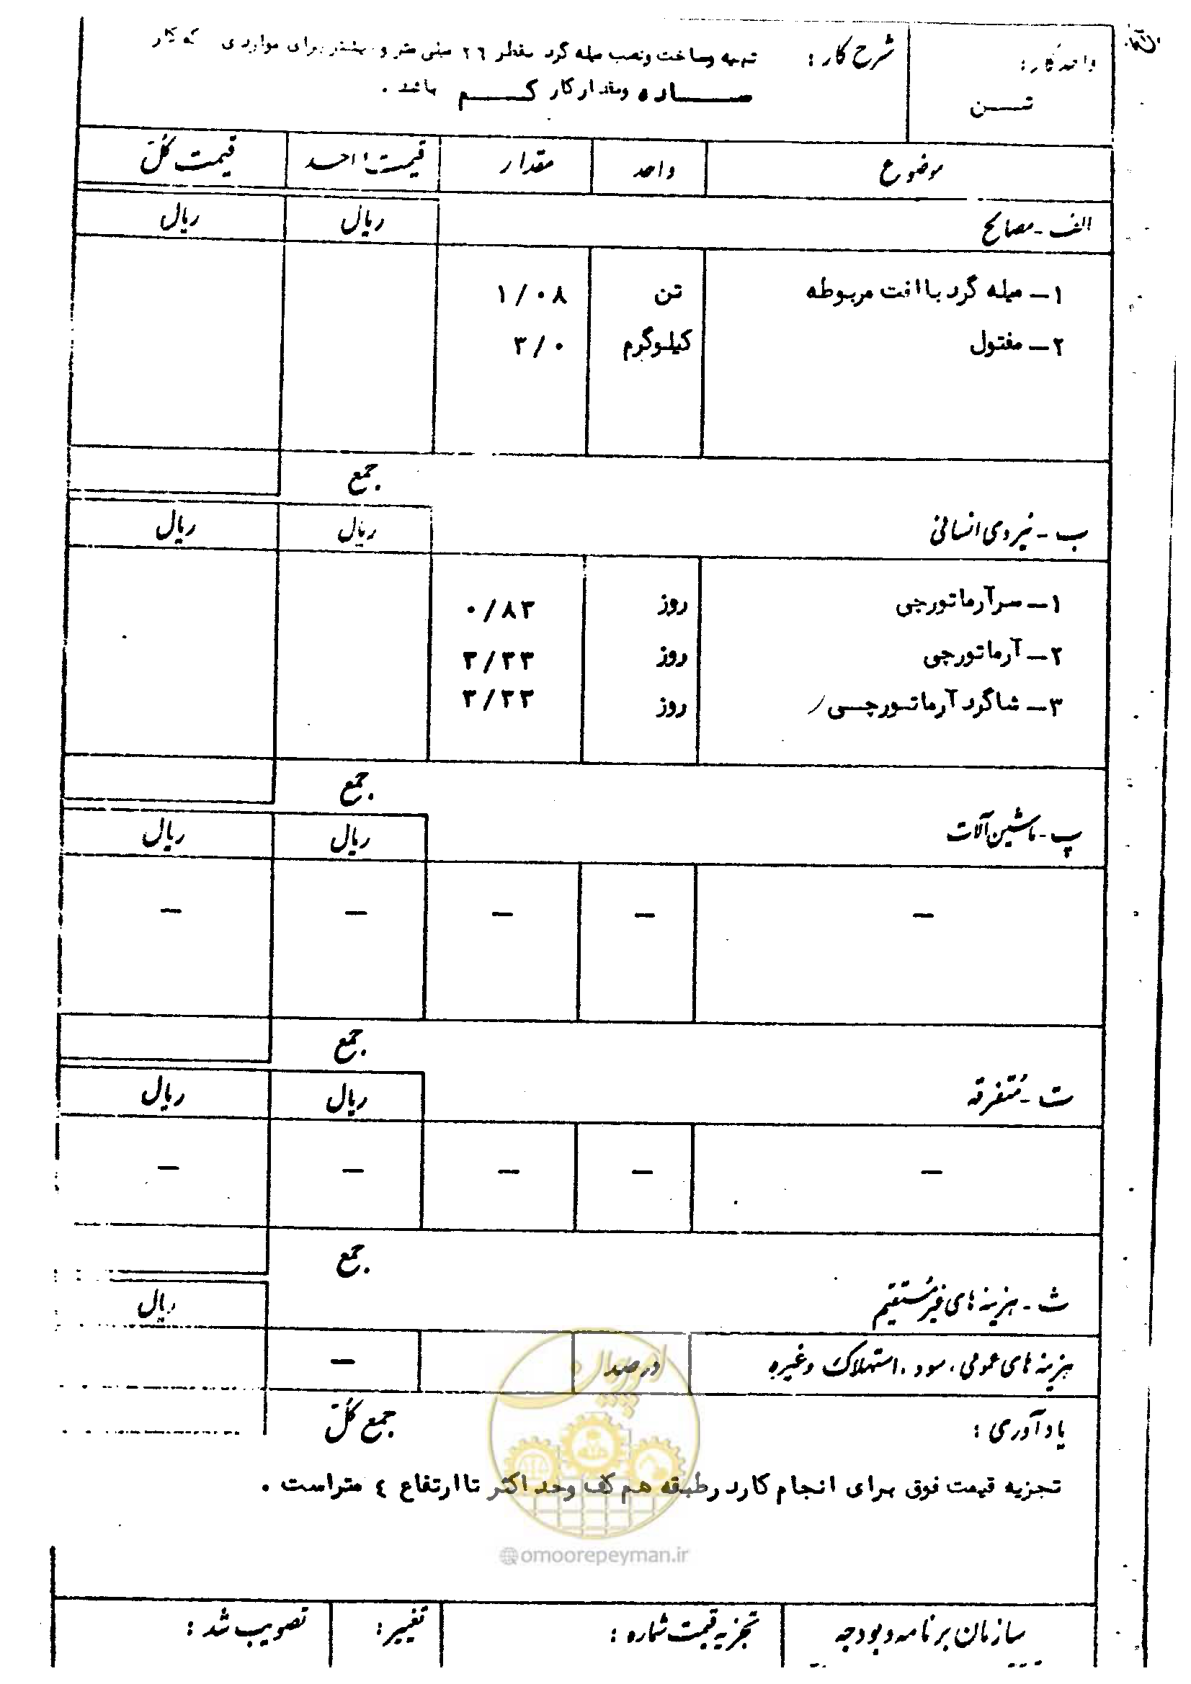 واحد کار :
تـــن
شرح کار :
تهیه وساخت ونصب میله گرد بقطر ۲۶ میلی متر و بیشتر برای مواردی که کار
ســـاده ومقدار کار کـــم باشد .
موضوع
واحد
مقدار
قیمت واحد
قیمت کل
الف - مصالح
ریال
ریال
۱ – میله گرد با افت مربوطه
تن
۱/۰۸
۲ – مفتول
کیلوگرم
۳/۰
جمع
ب - نیروی انسانی
ریال
ریال
۱ – سرآرماتورچی
روز
۰/۸۳
۲ – آرماتورچی
روز
۳/۳۳
۳ – شاگرد آرماتورچـــی
روز
۳/۳۳
جمع
پ - ماشین آلات
ریال
ریال
– – – – –
جمع
ت - متفرقه
ریال
ریال
– – – – –
جمع
ث - هزینه های غیرمستقیم
ریال
هزینه های عمومی ، سود ، استهلاک و غیره
درصد
–
جمع کل
یادآوری :
تجزیه قیمت فوق برای انجام کار در طبقه هم کف وحد اکثر تا ارتفاع ٤ متراست .
امور پیمان
@omoorepeyman.ir
سازمان برنامه و بودجه
تجزیه قیمت شماره :
تغییر :
تصویب شد :